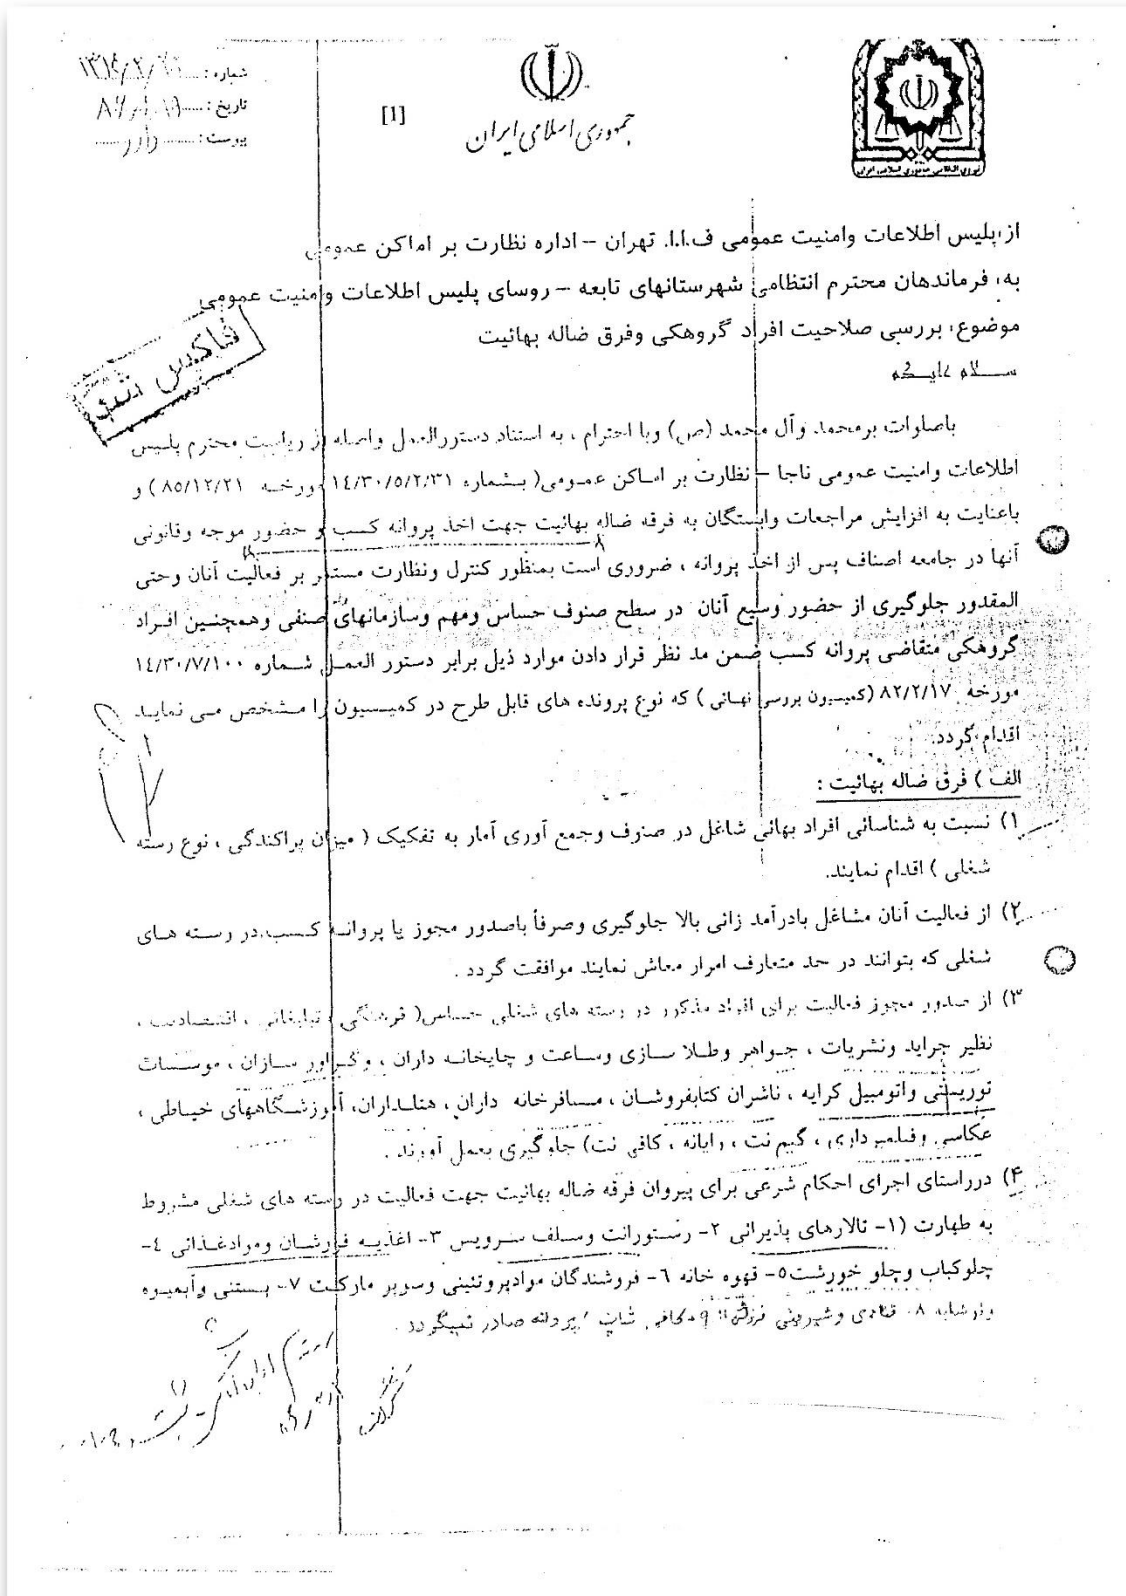 شماره :
تاریخ :
پیوست :
[1]
جمهوری اسلامی ایران
نیروی انتظامی جمهوری اسلامی ایران
از، پلیس اطلاعات وامنیت عمومی ف.ا.ا. تهران – اداره نظارت بر اماکن عمومی
به، فرماندهان محترم انتظامی شهرستانهای تابعه – روسای پلیس اطلاعات وامنیت عمومی
موضوع، بررسی صلاحیت افراد گروهکی وفرق ضاله بهائیت
سلام علیکم
فاکس شد
باصلوات برمحمد وآل محمد (ص) وبا احترام ، به استناد دستورالعمل واصله از ریاست محترم پلیس
اطلاعات وامنیت عمومی ناجا – نظارت بر اماکن عمومی( بشماره ١٤/٣٠/٥/٢/٣١ مورخه ٨٥/١٢/٢١ ) و
باعنایت به افزایش مراجعات وابستگان به فرقه ضاله بهائیت جهت اخذ پروانه کسب و حضور موجه وقانونی
آنها در جامعه اصناف پس از اخذ پروانه ، ضروری است بمنظور کنترل ونظارت مستمر بر فعالیت آنان وحتی
المقدور جلوگیری از حضور وسیع آنان در سطح صنوف حساس ومهم وسازمانهای صنفی وهمچنین افراد
گروهکی متقاضی پروانه کسب ضمن مد نظر قرار دادن موارد ذیل برابر دستور العمل شماره ١٤/٣٠/٧/١٠٠
مورخه ٨٢/٢/١٧ (کمیسیون بررسی نهائی ) که نوع پرونده های قابل طرح در کمیسیون را مشخص می نماید
اقدام گردد.
الف ) فرق ضاله بهائیت :
١) نسبت به شناسائی افراد بهائی شاغل در صنوف وجمع آوری آمار به تفکیک ( میزان پراکندگی ، نوع رسته
شغلی ) اقدام نمایند.
٢) از فعالیت آنان مشاغل بادرآمد زائی بالا جلوگیری وصرفاً باصدور مجوز یا پروانه کسب در رسته های
شغلی که بتوانند در حد متعارف امرار معاش نمایند موافقت گردد .
٣) از صدور مجوز فعالیت برای افراد مذکور در رسته های شغلی حساس( فرهنگی ، تبلیغاتی ، اقتصادی ،
نظیر جراید ونشریات ، جواهر وطلا سازی وساعت و چاپخانه داران ، وگراور سازان ، موسسات
توریستی واتومبیل کرایه ، ناشران کتابفروشان ، مسافرخانه داران ، هتلداران، آموزشگاههای خیاطی ،
عکاسی وفیلمبرداری ، گیم نت ، رایانه ، کافی نت) جلوگیری بعمل آورند .
۴) درراستای اجرای احکام شرعی برای پیروان فرقه ضاله بهائیت جهت فعالیت در رسته های شغلی مشروط
به طهارت (١- تالارهای پذیرائی ٢- رستورانت وسلف سرویس ٣- اغذیه فروشان وموادغذائی ٤-
چلوکباب وچلو خورشت ٥- قهوه خانه ٦- فروشندگان موادپروتئینی وسوپر مارکت ٧- بستنی وآبمیوه
ونوشابه ٨- قنادی وشیرینی فروشی ٩- کافی شاپ ) پروانه صادر نمیگردد .